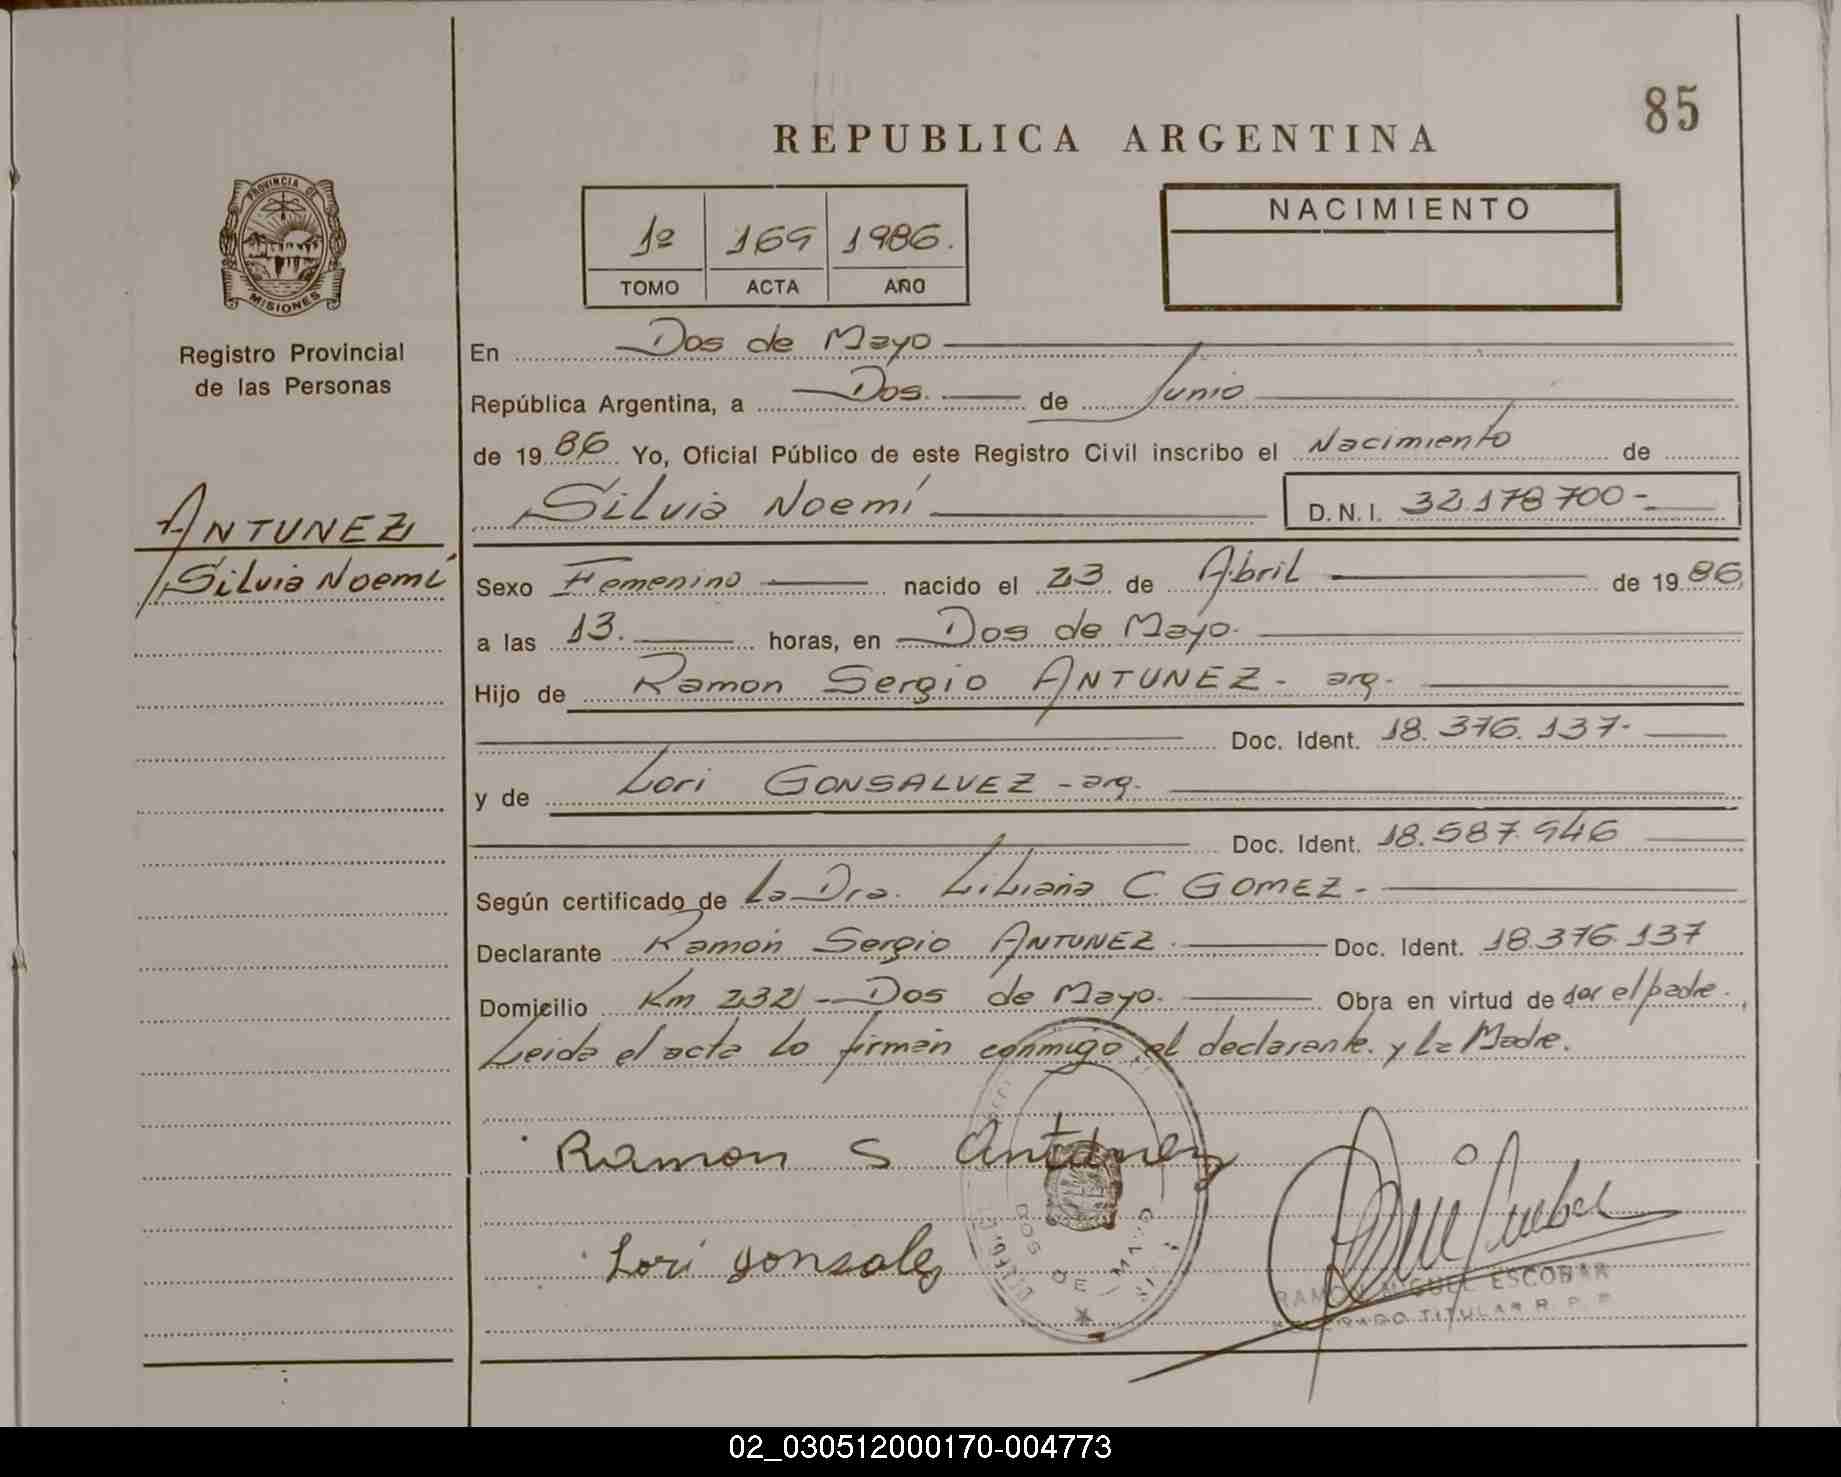 85
REPUBLICA ARGENTINA
PROVINCIA DE
MISIONES
Registro Provincial
de las Personas
1º 169 1986.
TOMO ACTA AÑO
NACIMIENTO
En Dos de Mayo
República Argentina, a Dos. de Junio
de 1986 Yo, Oficial Público de este Registro Civil inscribo el Nacimiento de
Silvia Noemí D.N.I. 32.178.700-
ANTUNEZ
Silvia Noemí
Sexo Femenino nacido el 23 de Abril de 1986
a las 13. horas, en Dos de Mayo.
Hijo de Ramon Sergio ANTUNEZ - arg.
Doc. Ident. 18.376.137-
y de Lori GONSALVEZ - arg.
Doc. Ident. 18.587.946
Según certificado de la Dra. Liliana C. GOMEZ -
Declarante Ramon Sergio ANTUNEZ. Doc. Ident. 18.376.137
Domicilio Km 232 - Dos de Mayo. Obra en virtud de ser el padre.
Leida el acta lo firman conmigo, el declarante. y la Madre.
Ramon S Antunez
Lori gonsalez
DOS DE MAYO
RAMON MIGUEL ESCOBAR
TITULAR R. P. P.
02_030512000170-004773